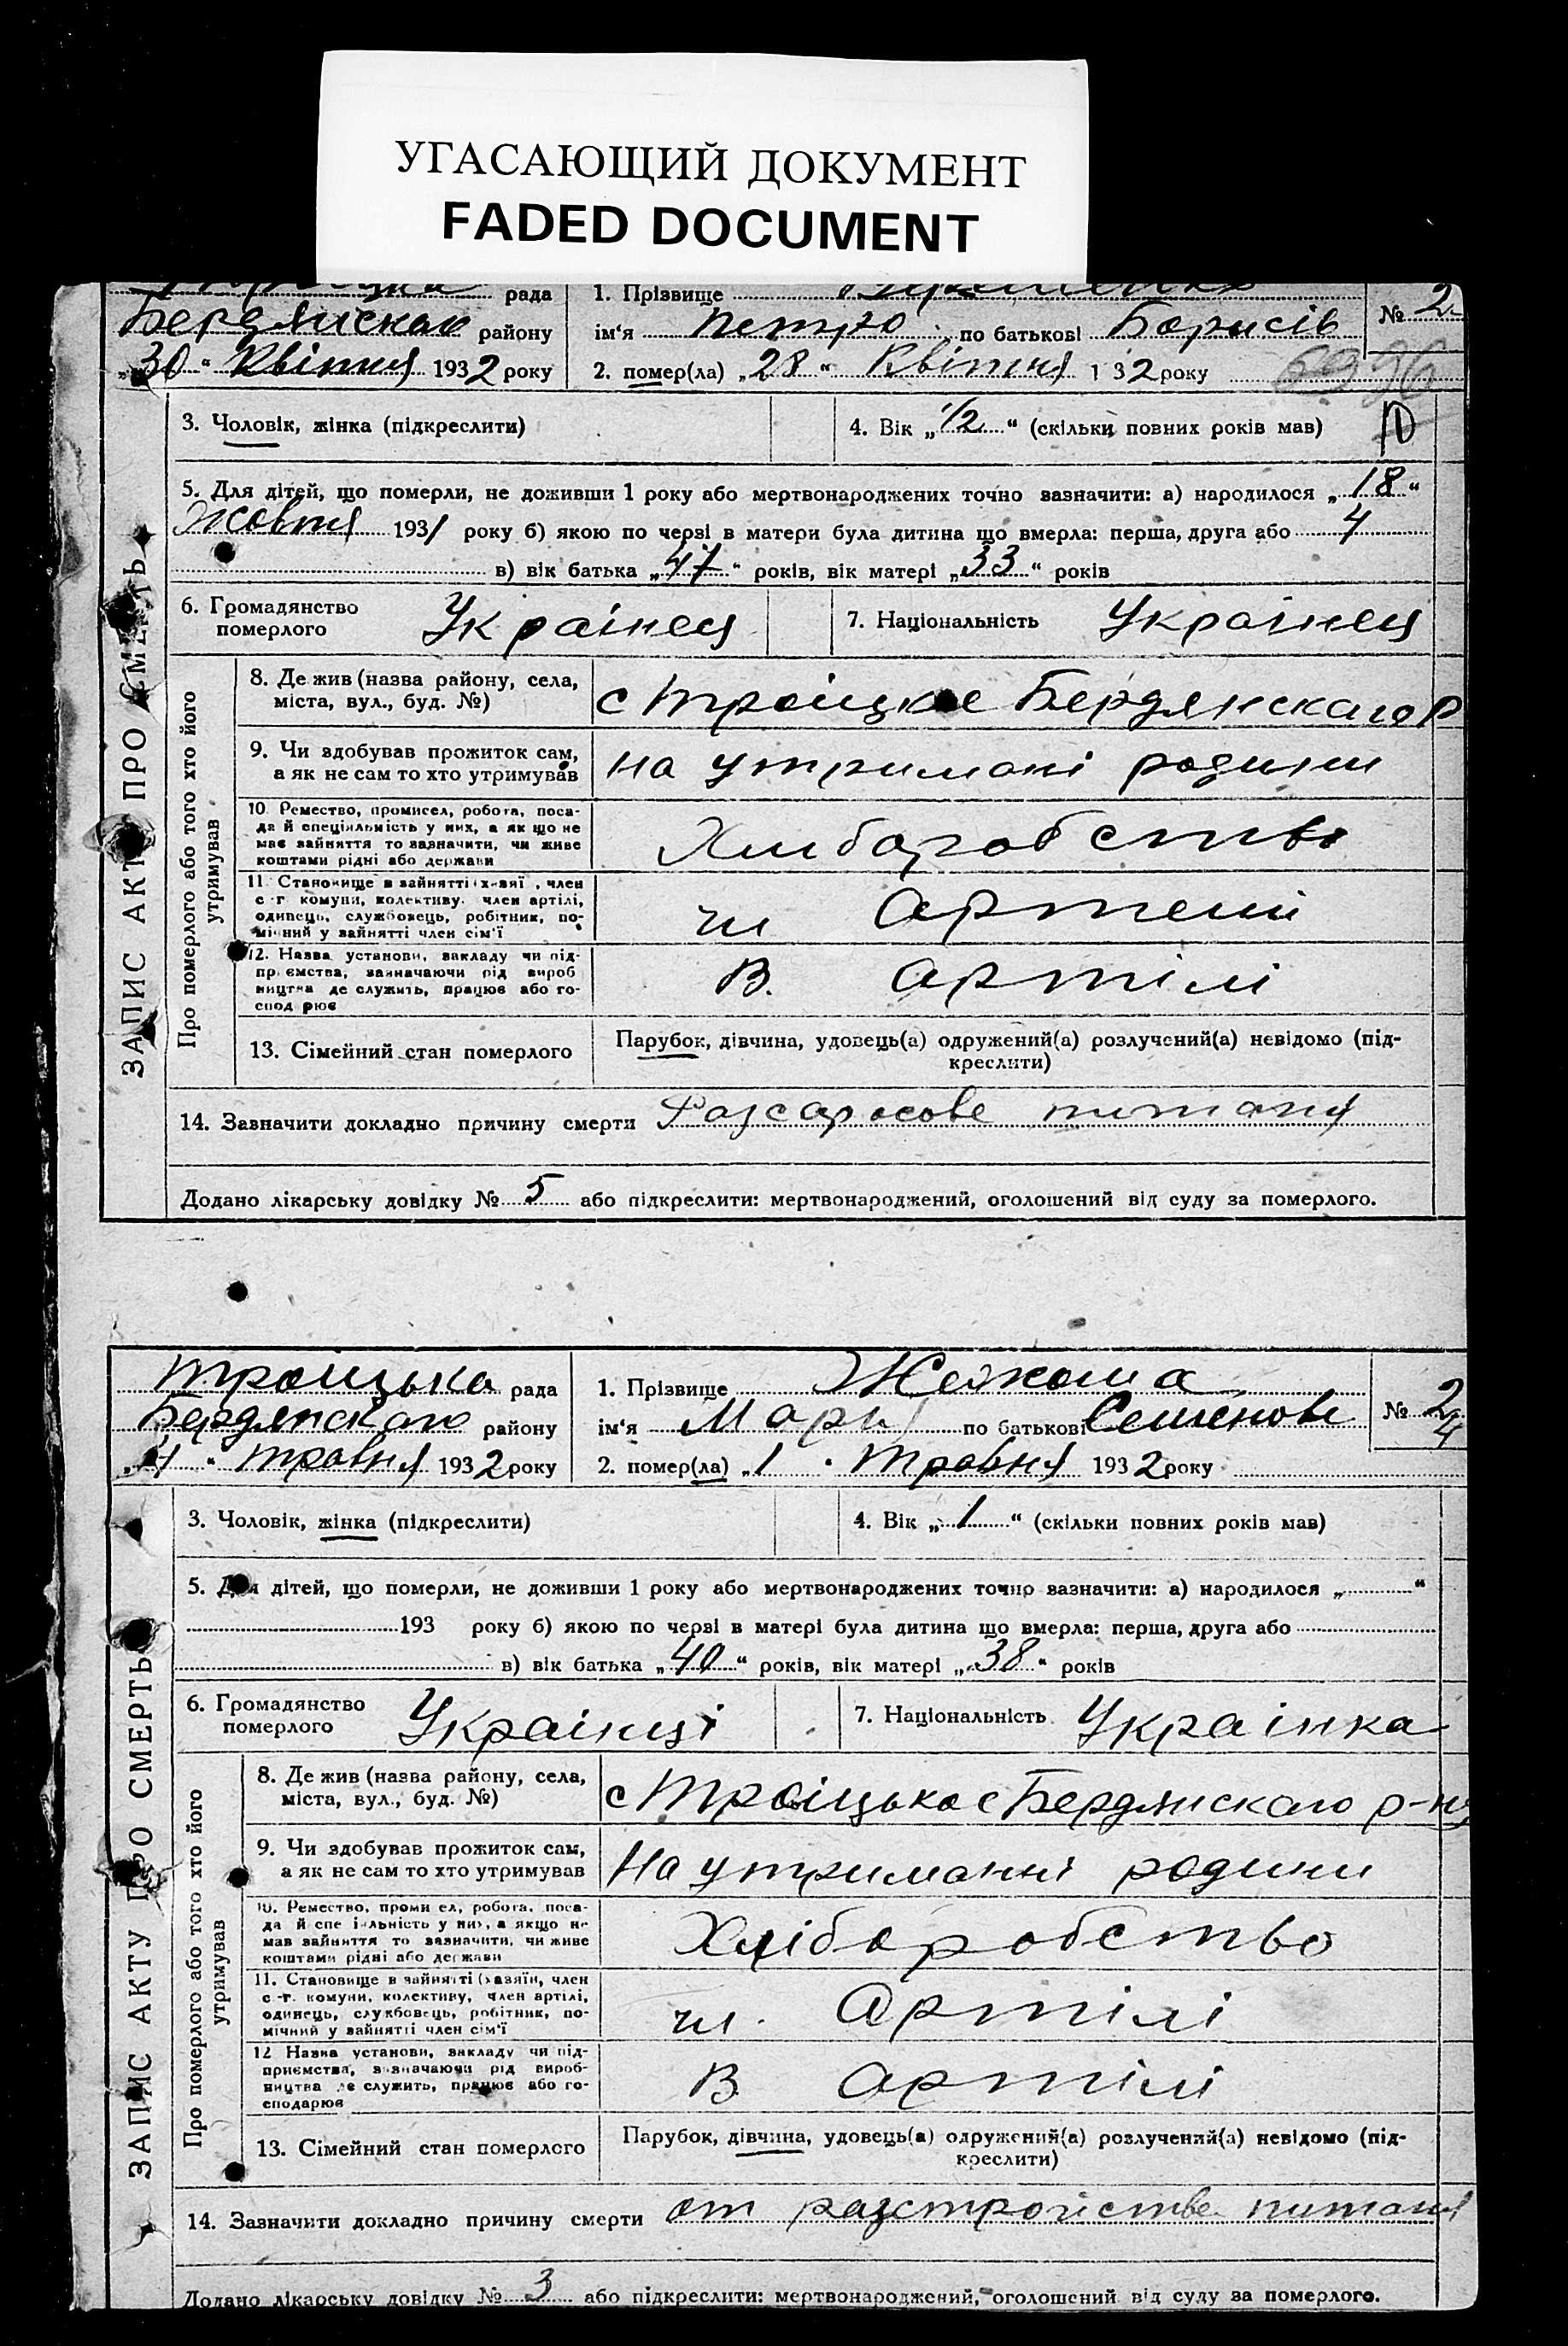 УГАСАЮЩИЙ ДОКУМЕНТ
FADED DOCUMENT
рада
1. Прізвище
№ 2
Бердянскаго району
ім‘я Петро по батькові Борисів
„30“ Квітня 1932 року
2. помер(ла) „28“ Квітня 1 32 року
3. Чоловік, жінка (підкреслити)
4. Вік „1/2“ (скільки повних років мав)
5. Для дітей, що померли, не доживши 1 року або мертвонароджених точно зазначити: а) народилося „18“
Жовтня 1931 року б) якою по черзі в матери була дитина що вмерла: перша, друга або 4
в) вік батька „47“ років, вік матері „33“ років
6. Громадянство померлого Украінец
7. Національність Украінец
ЗАПИС АКТУ ПРО СМЕРТЬ
Про померлого або того хто його утримував
8. Де жив (назва району, села,
міста, вул., буд. №)
с Троіцкое Бердянскаго р
9. Чи здобував прожиток сам,
а як не сам то хто утримував
на утримані родини
10. Ремество, промисел, робота, поса-
да й спеціяльність у них, а як що не
має зайняття то зазначити, чи живе
коштами рідні або держави
Хлиборобство
11. Становище в зайнятті (хазяї , член
с-г комуни, колективу, член артілі,
одинець, службовець, робітник, по-
мічний у зайнятті член сім‘ї
чл Артели
12. Назва установи, закладу чи під-
приємства, зазначаючи рід вироб
ництва де служить, працює або го-
спод рює
В. артілі
13. Сімейний стан померлого
Парубок, дівчина, удовець(а) одружений(а) розлучений(а) невідомо (під-
креслити)
14. Зазначити докладно причину смерти питаня
Додано лікарську довідку № 5 або підкреслити: мертвонароджений, оголошений від суду за померлого.
Троицька рада
1. Прізвище
№ 2/4
Бердянського району
ім‘я Марія по батькові Семенове
„4“ травня 1932 року
2. помер(ла) „1 “ Травня 1932 року
3. Чоловік, жінка (підкреслити)
4. Вік „1“ (скільки повних років мав)
5. Для дітей, що померли, не доживши 1 року або мертвонароджених точно зазначити: а) народилося „ “
193 року б) якою по черзі в матері була дитина що вмерла: перша, друга або
в) вік батька „40“ років, вік матері „38“ років
6. Громадянство померлого Украінці
7. Національність Украінка
ЗАПИС АКТУ ПРО СМЕРТЬ
Про померлого або того хто його утримував
8. Де жив (назва району, села,
міста, вул., буд. №)
с Троіцькое Бердянскаго р-ну
9. Чи здобував прожиток сам,
а як не сам то хто утримував
На утриманні родини
10. Ремество, проми ел, робота, поса-
да й спе і льність у них, а якщо не
мав зайняття то зазначити, чи живе
коштами рідні або держави
Хліборобство
11. Становище в зайнятті (хазяїн, член
с.-г. комуни, колективу, член артілі,
одинець, службовець, робітник, по-
мічний у зайнятті член сім‘ї
чл. Артілі
12 Назва установи, закладу чи під-
приємства, зазначаючи рід вироб-
ництва де служить, працює або го-
сподарює
В артілі
13. Сімейний стан померлого
Парубок, дівчина, удовець(а) одружений(а) розлучений(а) невідомо (під-
креслити)
14. Зазначити докладно причину смерти от разстройстве питаня
Додано лікарську довідку № 3 або підкреслити: мертвонароджений, оголошений від суду за померлого.